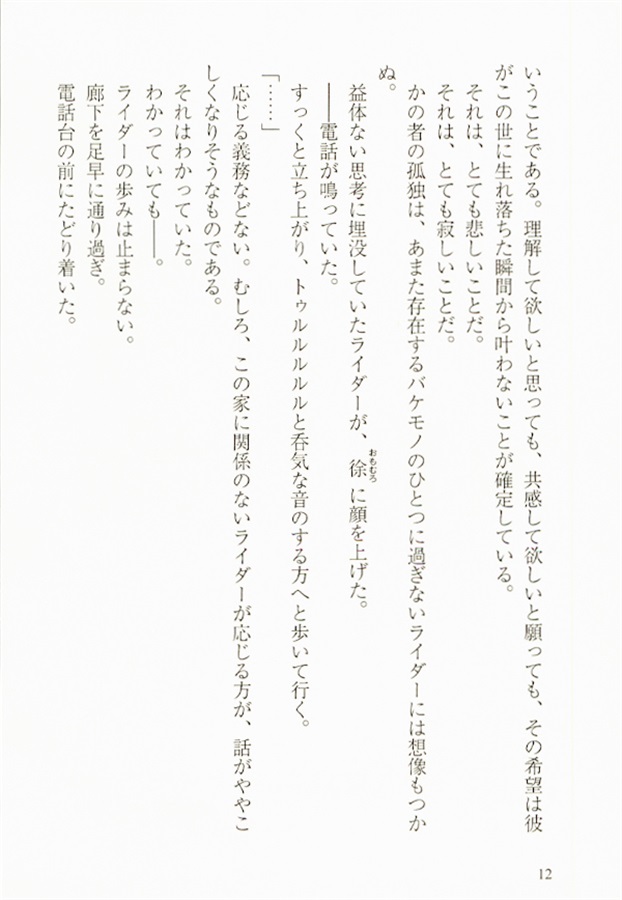 いうことである。理解して欲しいと思っても、共感して欲しいと願っても、その希望は彼
がこの世に生れ落ちた瞬間から叶わないことが確定している。
それは、とても悲しいことだ。
それは、とても寂しいことだ。
かの者の孤独は、あまた存在するバケモノのひとつに過ぎないライダーには想像もつか
ぬ。
益体ない思考に埋没していたライダーが、徐おもむろに顔を上げた。
――電話が鳴っていた。
すっくと立ち上がり、トゥルルルルルと呑気な音のする方へと歩いて行く。
「……」
応じる義務などない。むしろ、この家に関係のないライダーが応じる方が、話がややこ
しくなりそうなものである。
それはわかっていた。
わかっていても――。
ライダーの歩みは止まらない。
廊下を足早に通り過ぎ。
電話台の前にたどり着いた。
12